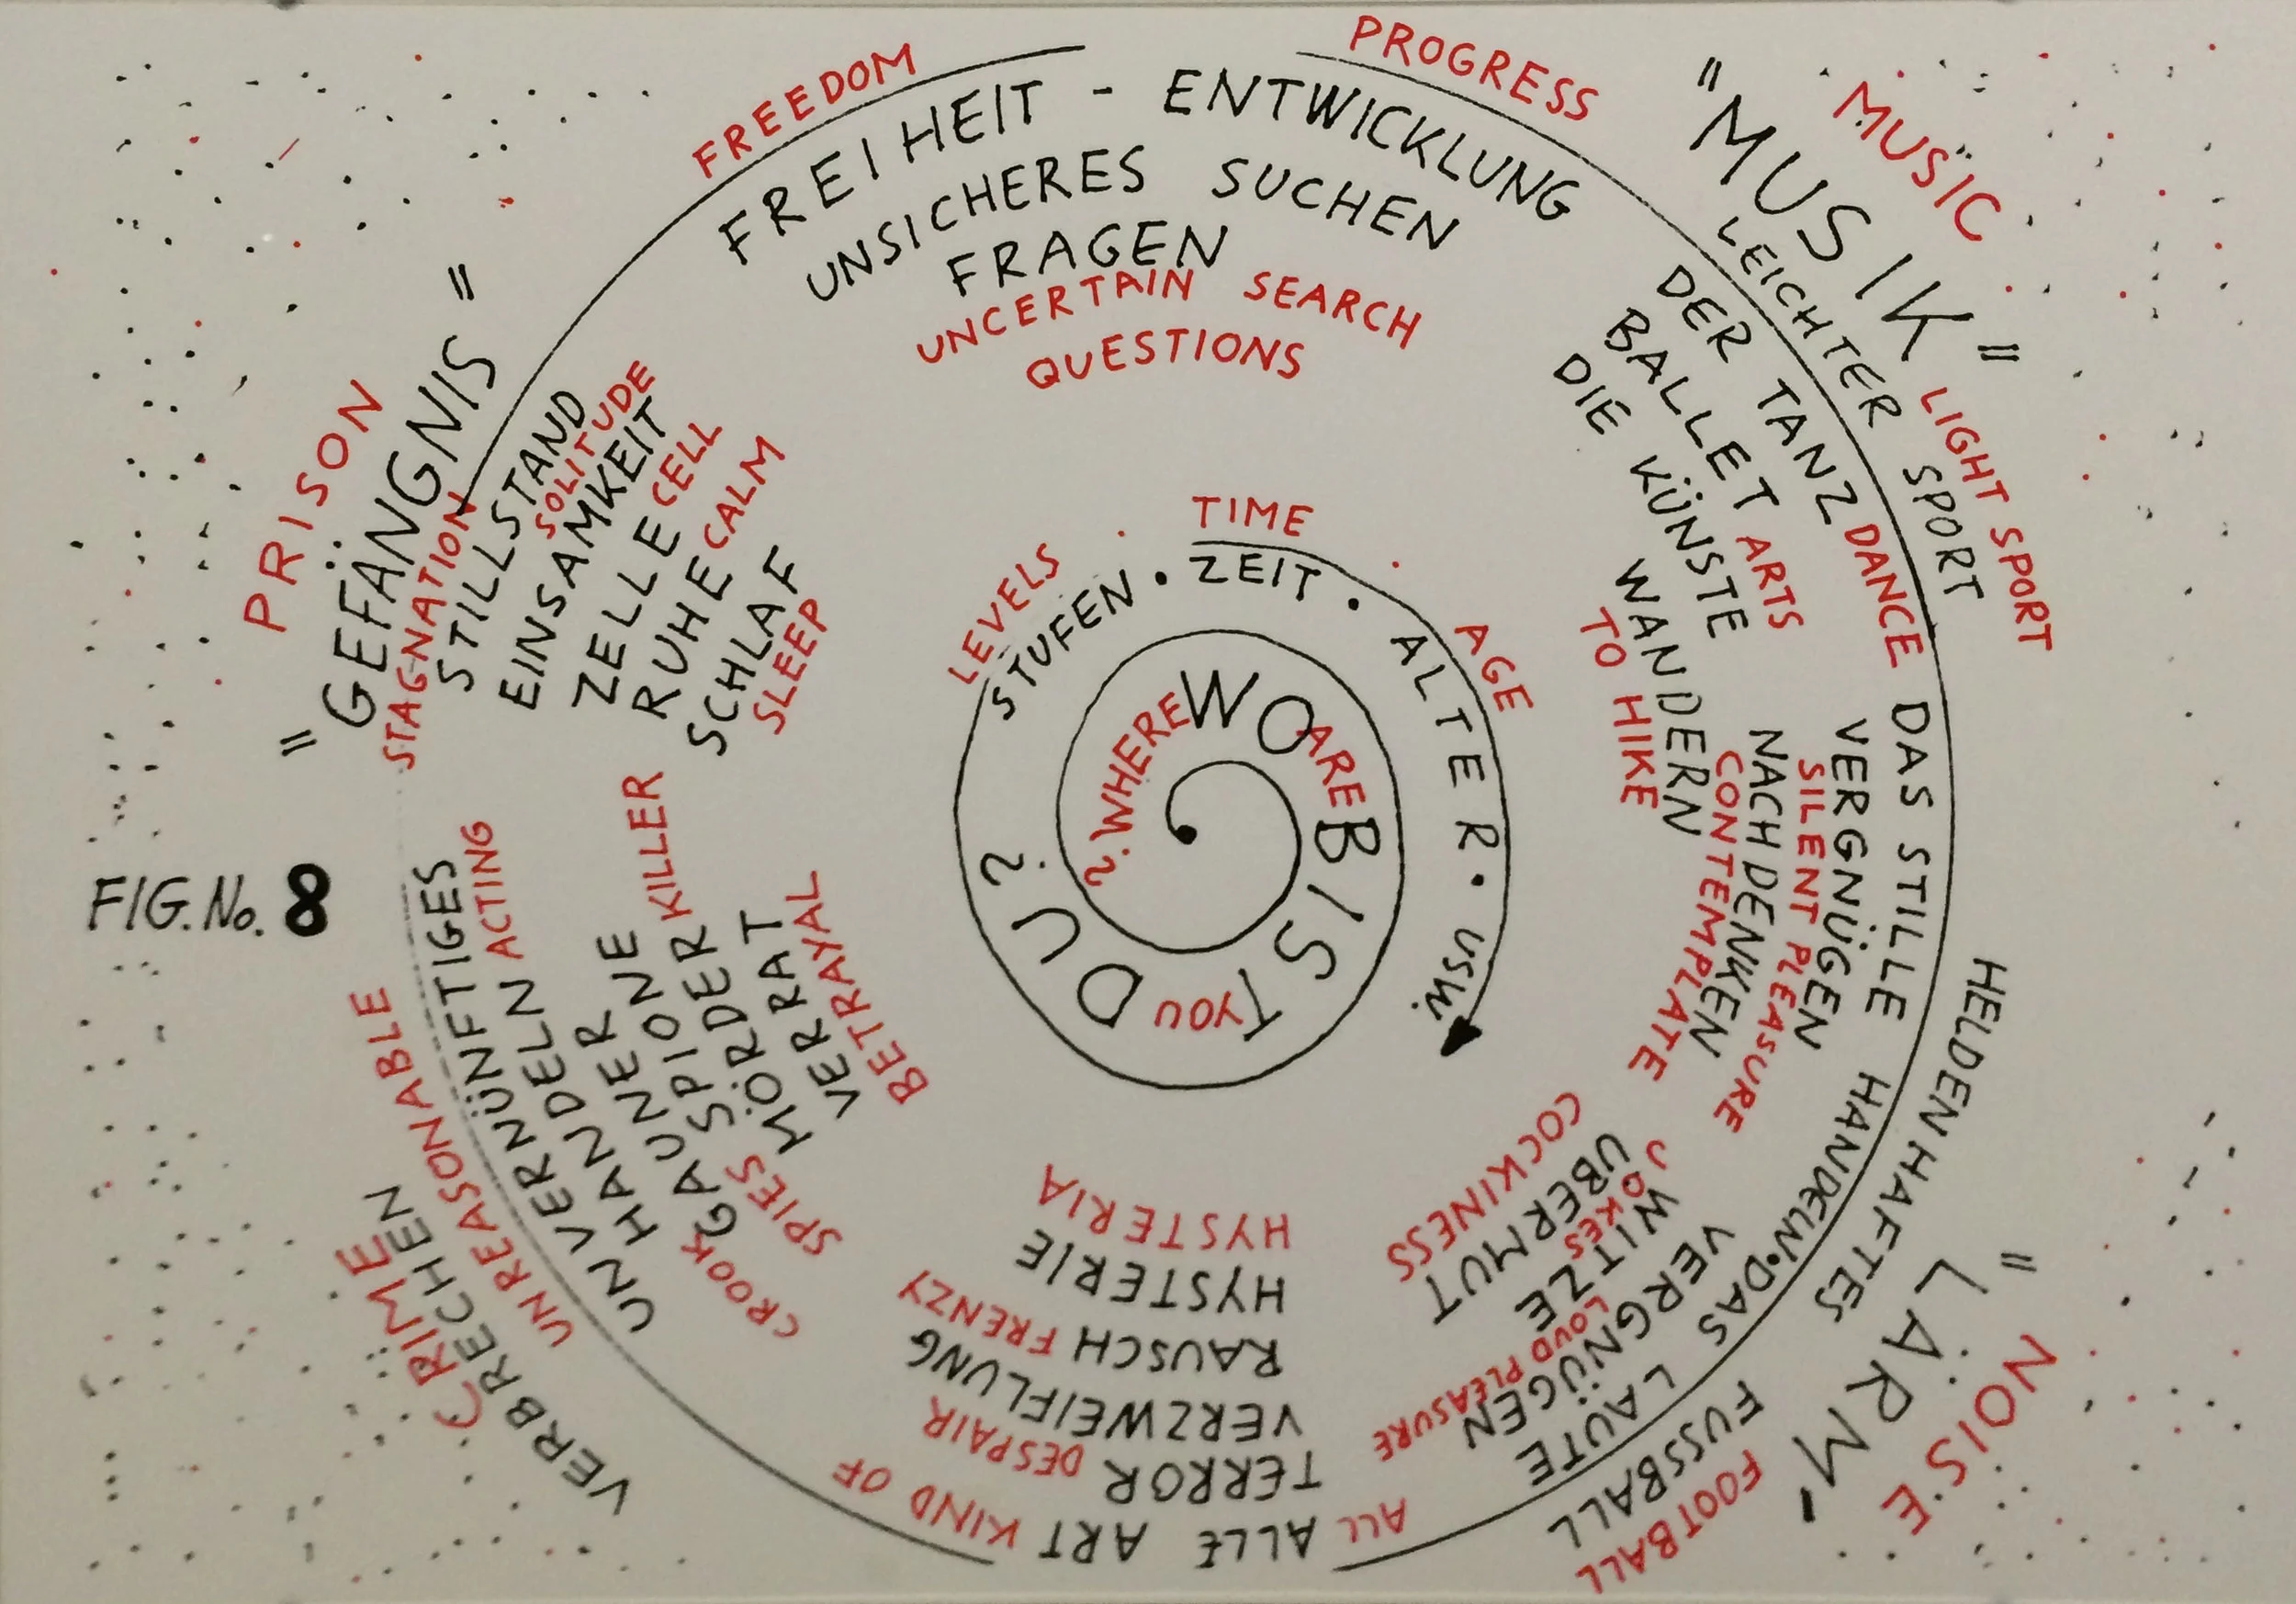 FREEDOM
PROGRESS
FREIHEIT - ENTWICKLUNG
UNSICHERES SUCHEN
FRAGEN
UNCERTAIN SEARCH
QUESTIONS
MUSIC
"MUSIK"
LEICHTER SPORT
LIGHT SPORT
DER TANZ DANCE
BALLET ARTS
DIE KÜNSTE
WANDERN
TO HIKE
DAS STILLE
VERGNÜGEN
SILENT PLEASURE
NACHDENKEN
CONTEMPLATE
HELDENHAFTES
HANDELN · DAS LAUTE
VERGNÜGEN
LOUD PLEASURE
WITZE
JOKES
ÜBERMUT
COCKINESS
"LÄRM"
NOISE
FUSSBALL
FOOTBALL
ALL KIND OF
ALLE ART
TERROR
DESPAIR
VERZWEIFLUNG
RAUSCH FRENZY
HYSTERIE
HYSTERIA
CRIME
VERBRECHEN
UNREASONABLE
ACTING
UNVERNÜNFTIGES
HANDELN
GAUNER
CROOK
SPIONE
SPIES
MÖRDER KILLER
VERRAT
BETRAYAL
FIG. No. 8
PRISON
"GEFÄNGNIS"
STAGNATION
STILLSTAND
SOLITUDE
EINSAMKEIT
ZELLE CELL
RUHE CALM
SCHLAF
SLEEP
LEVELS
TIME
AGE
STUFEN · ZEIT · ALTER · USW.
WO BIST DU?
WHERE ARE YOU ?